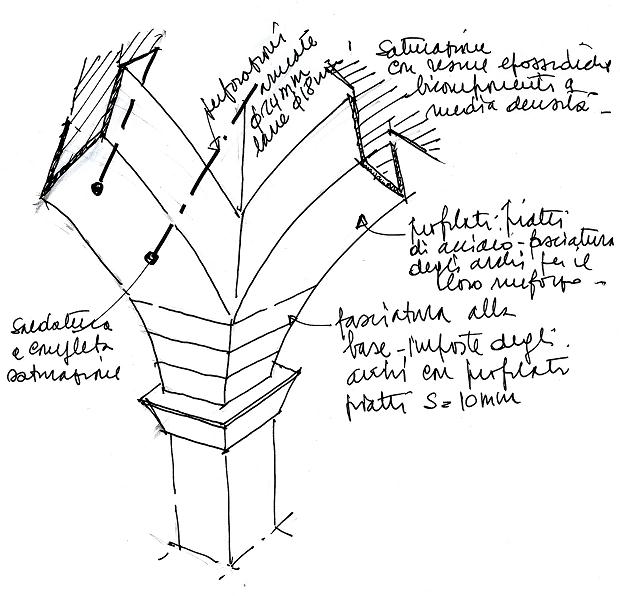 perforazioni
armate
φ24mm
barre φ18mm
Saturazione
con resine epossidiche
bicomponenti a
media densità -
profilati piatti
di acciaio - fasciatura
degli archi per il
loro rinforzo -
fasciatura alla
base - imposte degli
archi con profilati
piatti S=10mm
Saldatura
e completa
saturazione